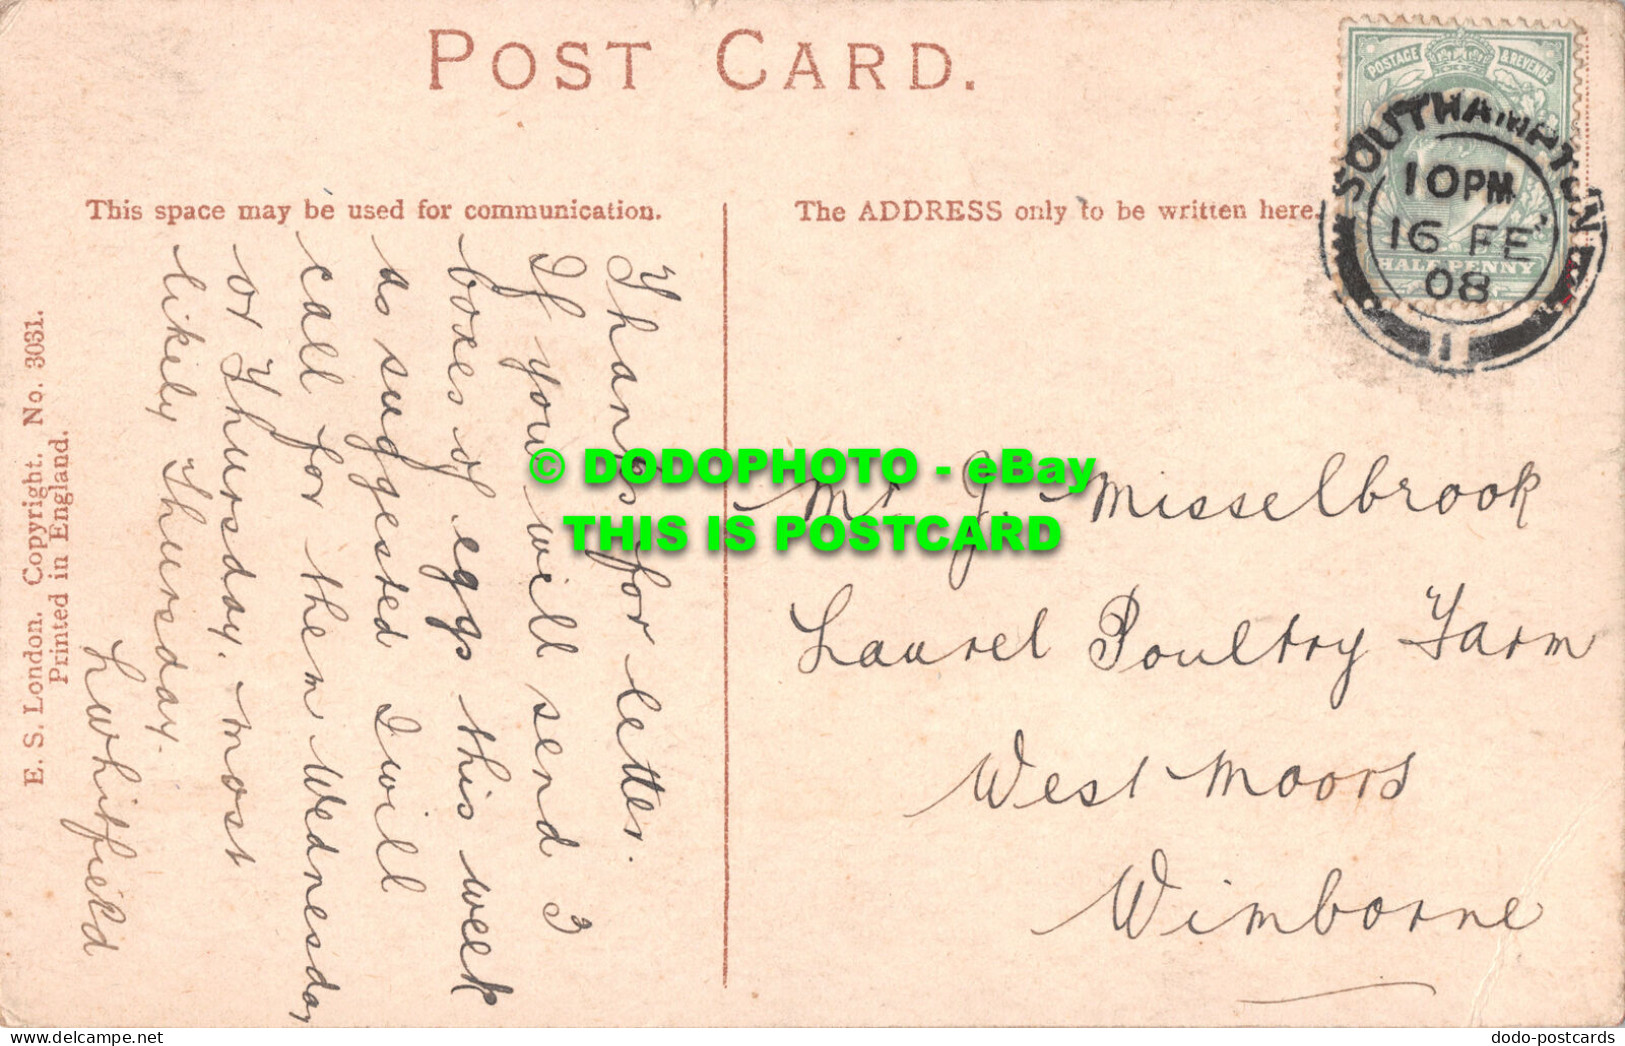 POST CARD.
This space may be used for communication.
The ADDRESS only to be written here.
POSTAGE & REVENUE
HALF PENNY
SOUTHAMPTON
10 PM
16 FE
08
1
Thanks for letter.
If you will send 3
boxes of eggs this week
as suggested I will
call for them Wednesday
or Thursday. most
likely Thursday.
L Whitfield
Mr J. Misselbrook
Laurel Poultry Farm
West Moors
Wimborne
E. S. London. Copyright. No. 3031.
Printed in England.
© DODOPHOTO - eBay
THIS IS POSTCARD
dodo-postcards